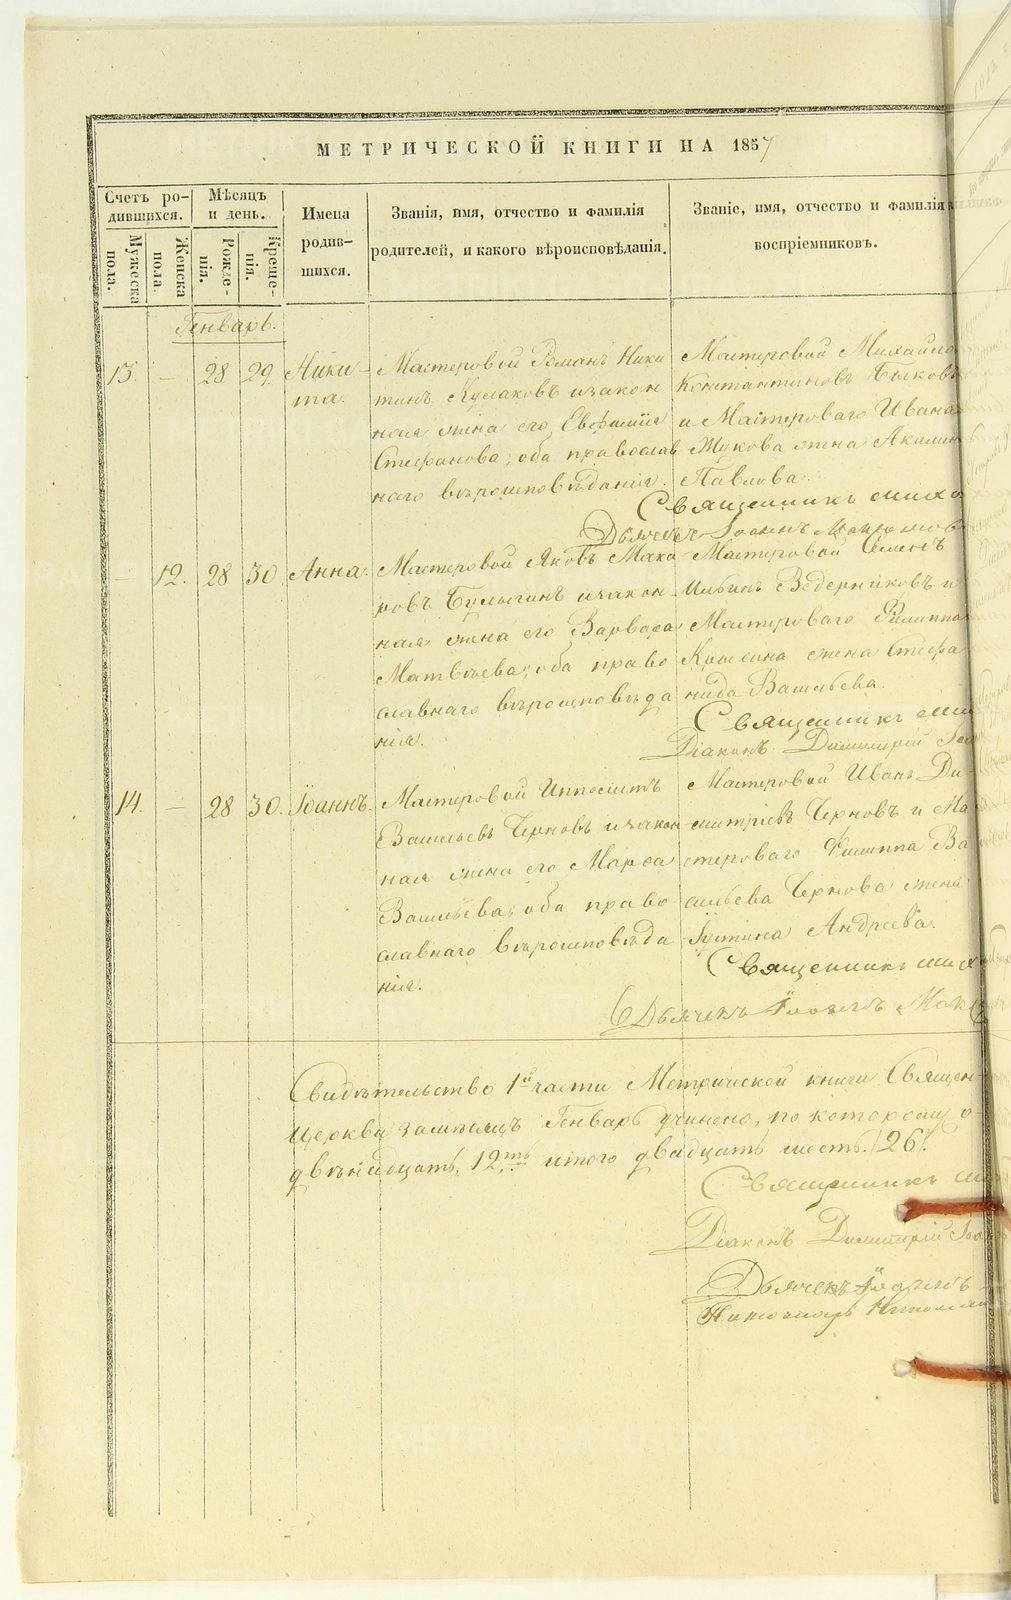 МЕТРИЧЕСКОЙ КНИГИ НА 1857
Счетъ ро-
дившихся.
Мужеска
пола.
Женска
пола.
Мѣсяцъ
и день.
Рожде-
нія.
Креще-
нія.
Имена
родив-
шихся.
Званія, имя, отчество и фамилія
родителей, и какого вѣроисповѣданія.
Званіе, имя, отчество и фамилія
воспріемниковъ.
Генварь.
13. — 28 29. Ники-
та.
Мастеровой Романъ Ники
тинъ Кулаковъ и закон
ная жена его Евфимія
Стефанова; оба православ
наго вѣроисповѣданія.
Мастеровой Михайло
Константиновъ Быковъ
и Мастероваго Ивана
Жукова жена Акилин
Павлова.
Священникъ
Дьячекъ Іоаннъ
— 12. 28 30. Анна.
Мастеровой Яковъ Мака
ровъ Булыгинъ и закон
ная жена его Варвара
Матвѣева; оба право
славнаго вѣроисповѣда
нія.
Мастеровой Семенъ
Ильинъ Ведерниковъ и
Мастероваго Филиппа
жена Стефа
нида Васильева.
Священникъ
Діаконъ Димитрій
14. — 28 30. Іоаннъ.
Мастеровой Ипполитъ
Васильевъ Черновъ и закон
ная жена его Марфа
Васильева; оба право
славнаго вѣроисповѣда
нія.
Мастеровой Иванъ Ди-
митріевъ Черновъ и Ма
стероваго Филиппа Ва
сильева Чернова жена
Іустина Андреева.
Священникъ
Дьячекъ Іоаннъ
Свидѣтельство 1й части Метрической книги Священ-
Церкви за мѣсяцъ Генварь учинено, по которому о-
двѣнадцать, 12ть итого двадцать шесть. /26/.
Священникъ
Діаконъ Димитрій
Дьячекъ Іоаннъ
Пономарь
METRIKI.GASO-URAL.RU